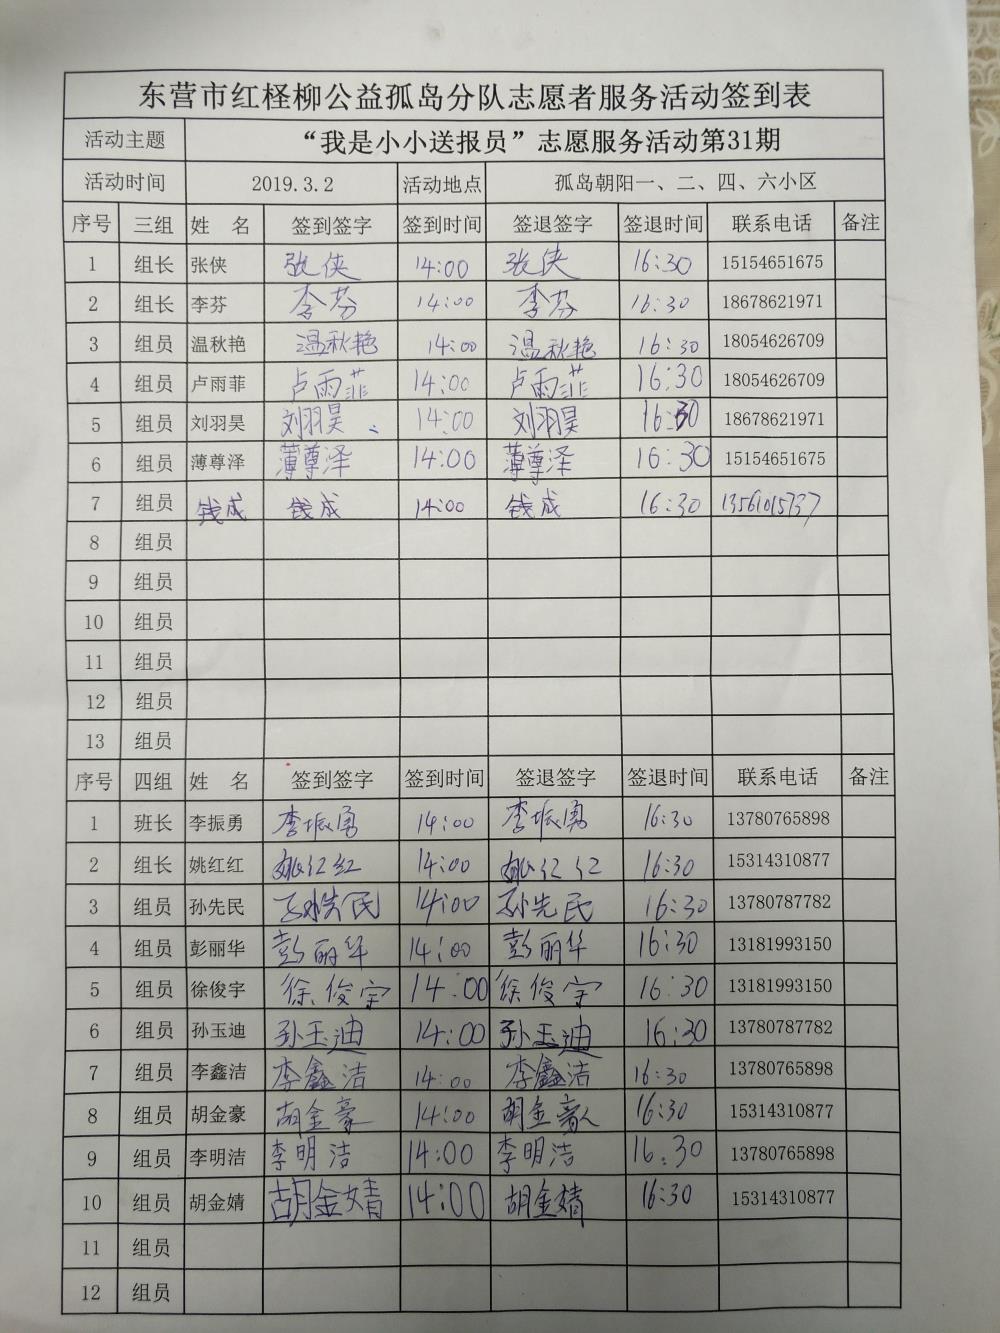 东营市红柽柳公益孤岛分队志愿者服务活动签到表
活动主题 “我是小小送报员”志愿服务活动第31期
活动时间 2019.3.2 活动地点 孤岛朝阳一、二、四、六小区
序号 三组 姓 名 签到签字 签到时间 签退签字 签退时间 联系电话 备注
1 组长 张侠 张侠 14:00 张侠 16:30 15154651675
2 组长 李芬 李芬 14:00 李芬 16:30 18678621971
3 组员 温秋艳 温秋艳 14:00 温秋艳 16:30 18054626709
4 组员 卢雨菲 卢雨菲 14:00 卢雨菲 16:30 18054626709
5 组员 刘羽昊 刘羽昊 14:00 刘羽昊 16:30 18678621971
6 组员 薄尊泽 薄尊泽 14:00 薄尊泽 16:30 15154651675
7 组员 钱成 钱成 14:00 钱成 16:30 13561015737
8 组员
9 组员
10 组员
11 组员
12 组员
13 组员
序号 四组 姓 名 签到签字 签到时间 签退签字 签退时间 联系电话 备注
1 班长 李振勇 李振勇 14:00 李振勇 16:30 13780765898
2 组长 姚红红 姚红红 14:00 姚红红 16:30 15314310877
3 组员 孙先民 孙先民 14:00 孙先民 16:30 13780787782
4 组员 彭丽华 彭丽华 14:00 彭丽华 16:30 13181993150
5 组员 徐俊宇 徐俊宇 14:00 徐俊宇 16:30 13181993150
6 组员 孙玉迪 孙玉迪 14:00 孙玉迪 16:30 13780787782
7 组员 李鑫洁 李鑫洁 14:00 李鑫洁 16:30 13780765898
8 组员 胡金豪 胡金豪 14:00 胡金豪 16:30 15314310877
9 组员 李明洁 李明洁 14:00 李明洁 16:30 13780765898
10 组员 胡金婧 胡金婧 14:00 胡金婧 16:30 15314310877
11 组员
12 组员